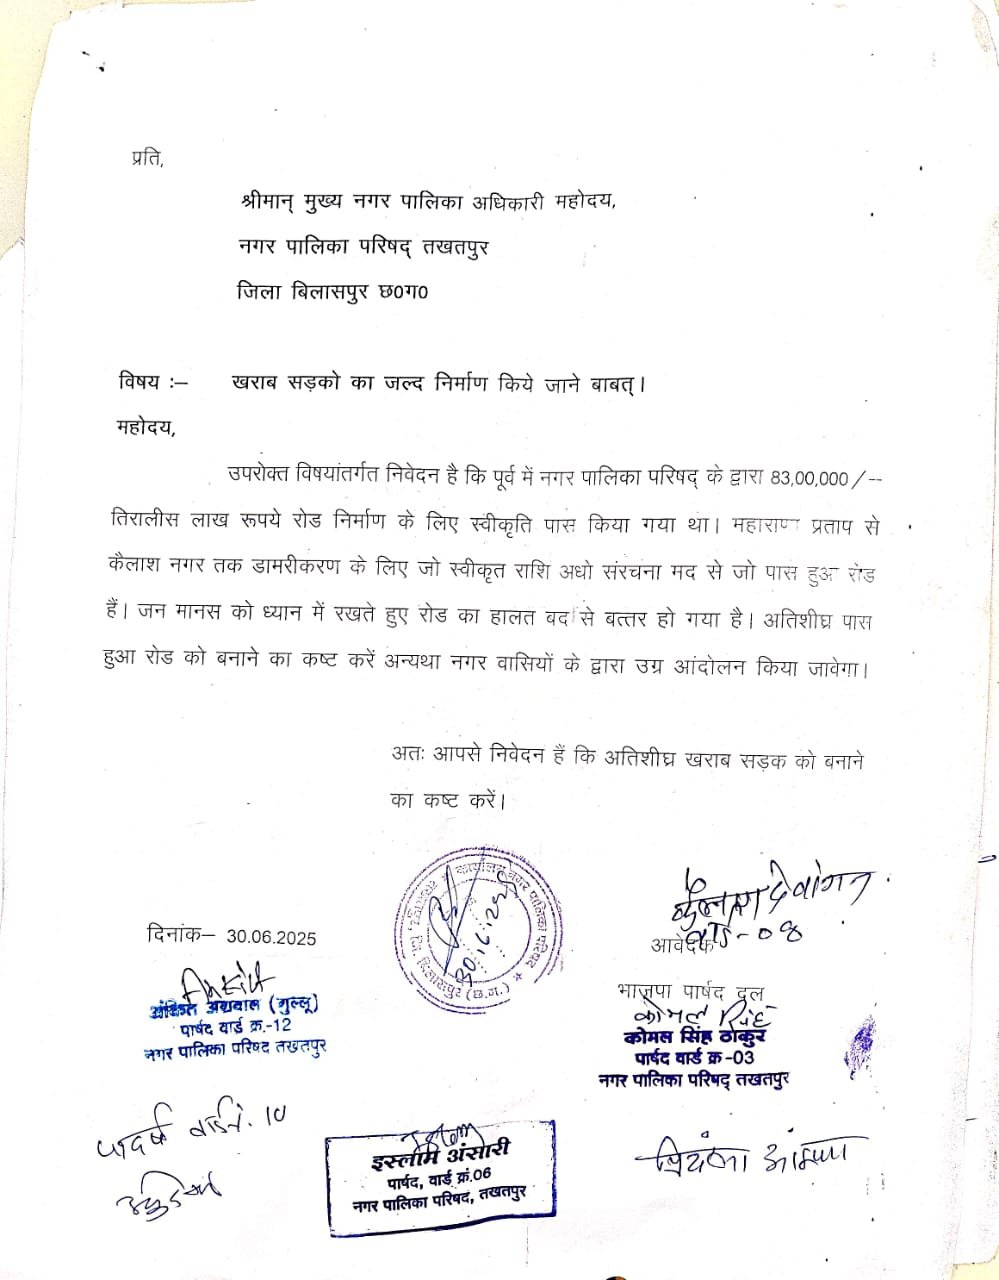 प्रति,
श्रीमान् मुख्य नगर पालिका अधिकारी महोदय,
नगर पालिका परिषद् तखतपुर
जिला बिलासपुर छ0ग0
विषय :– खराब सड़को का जल्द निर्माण किये जाने बाबत्।
महोदय,
उपरोक्त विषयांतर्गत निवेदन है कि पूर्व में नगर पालिका परिषद् के द्वारा 83,00,000/--
तिरालीस लाख रूपये रोड निर्माण के लिए स्वीकृति पास किया गया था। महाराणा प्रताप से
कैलाश नगर तक डामरीकरण के लिए जो स्वीकृत राशि अधो संरचना मद से जो पास हुआ रोड
हैं। जन मानस को ध्यान में रखते हुए रोड का हालत बद से बत्तर हो गया है। अतिशीघ्र पास
हुआ रोड को बनाने का कष्ट करें अन्यथा नगर वासियों के द्वारा उग्र आंदोलन किया जावेगा।
अतः आपसे निवेदन हैं कि अतिशीघ्र खराब सड़क को बनाने
का कष्ट करें।
कार्यालय नगर पालिका परिषद ★ तखतपुर, जि. बिलासपुर (छ.ग.)
30.6.25
कैलाश देवांगन
वार्ड-08
दिनांक– 30.06.2025
आवेदक
भाजपा पार्षद दल
अंकित अग्रवाल (गुल्लू)
पार्षद वार्ड क्र.-12
नगर पालिका परिषद तखतपुर
कोमल सिंह
कोमल सिंह ठाकुर
पार्षद वार्ड क्र-03
नगर पालिका परिषद् तखतपुर
पार्षद वार्ड नं. 10
इस्लाम अंसारी
पार्षद, वार्ड क्रं.06
नगर पालिका परिषद, तखतपुर